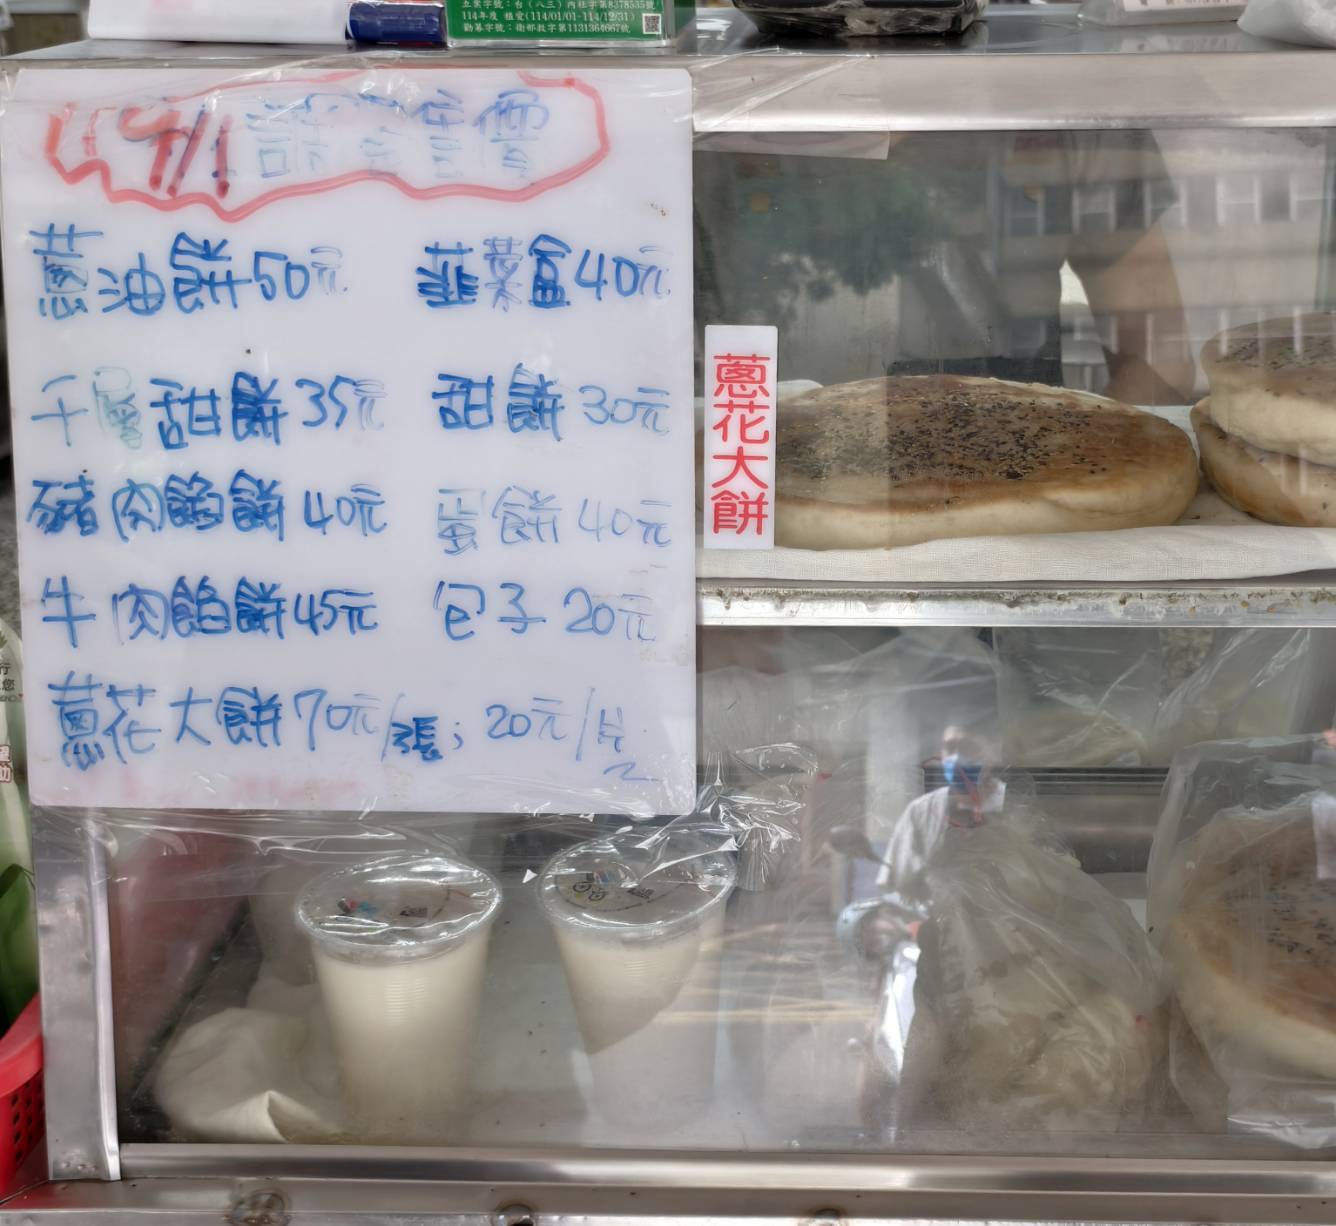 立案字號：台(八三)內社字第8378535號
114年度 植愛(114/01/01-114/12/31)
勸募字號：衛部救字第1131364667號
9/1 調整售價
蔥油餅50元 韭菜盒40元
千層甜餅35元 甜餅30元
豬肉餡餅40元 蛋餅40元
牛肉餡餅45元 包子20元
蔥花大餅70元/張；20元/片
蔥花大餅